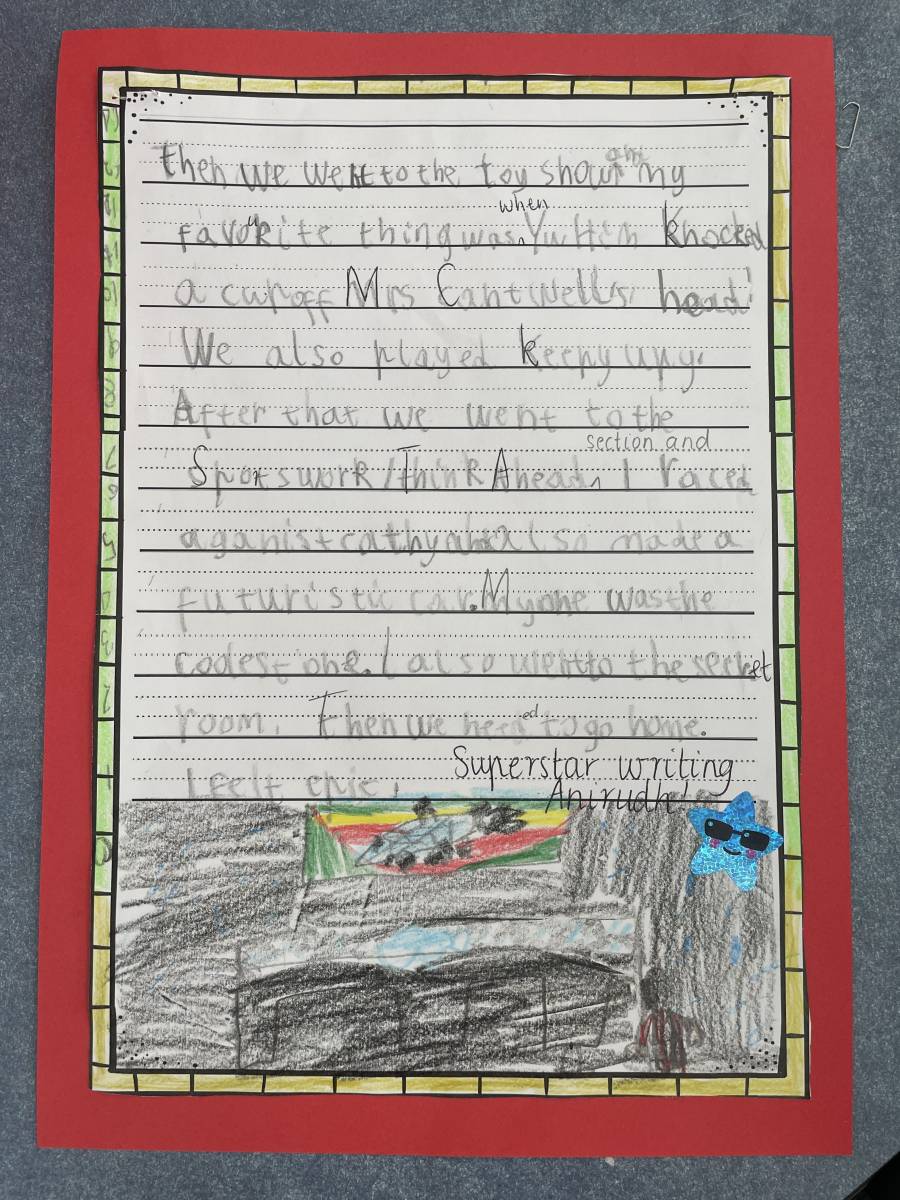 then we went to the toy show and my
when
favourite thing was Yu Him knocked
a cup off Mrs Cantwell's head!
We also played keepy upy.
After that we went to the
section and
Sportswork/Think Ahead, I raced
aganist cathy and also made a
futuristic car. My one was the
coolest one. I also went to the secret
room. Then we needed to go home.
I felt epic.
Superstar writing
Anirudh!